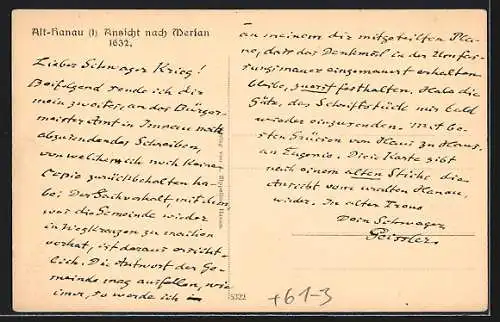 Alt-Hanau (I) Ansicht nach Merian
1632.
Lieber Schwager Krieg!
Beifolgend sende ich dir
mein zweites, an das Bürger-
meister Amt in
abzusendendes Schreiben,
von welchem ich noch keine
Copie zurückbehalten ha-
be. Der Sachverhalt mit dem
was die Gemeinde wieder
in Wegkrangen zu machen
vorhat, ist daraus ersicht-
lich. Die Antwort der Ge-
meinde mag ausfallen, wie
immer, so werde ich
an meinem dir mitgeteilten Pla-
ne, dass das Denkmal in der Umfas-
sungsmauer eingemauert erhalten
bleibe, zuerst festhalten. Habe die
Güte, das Schriftstück mir bald
wieder einzusenden. Mit be-
sten Grüssen von Haus zu Haus,
an Eugenie. Diese Karte gibt
nach einem alten Stiche die
Ansicht vom uralten Hanau,
wieder. In alter Treue
Dein Schwager
Geissler.
5322
+61-3